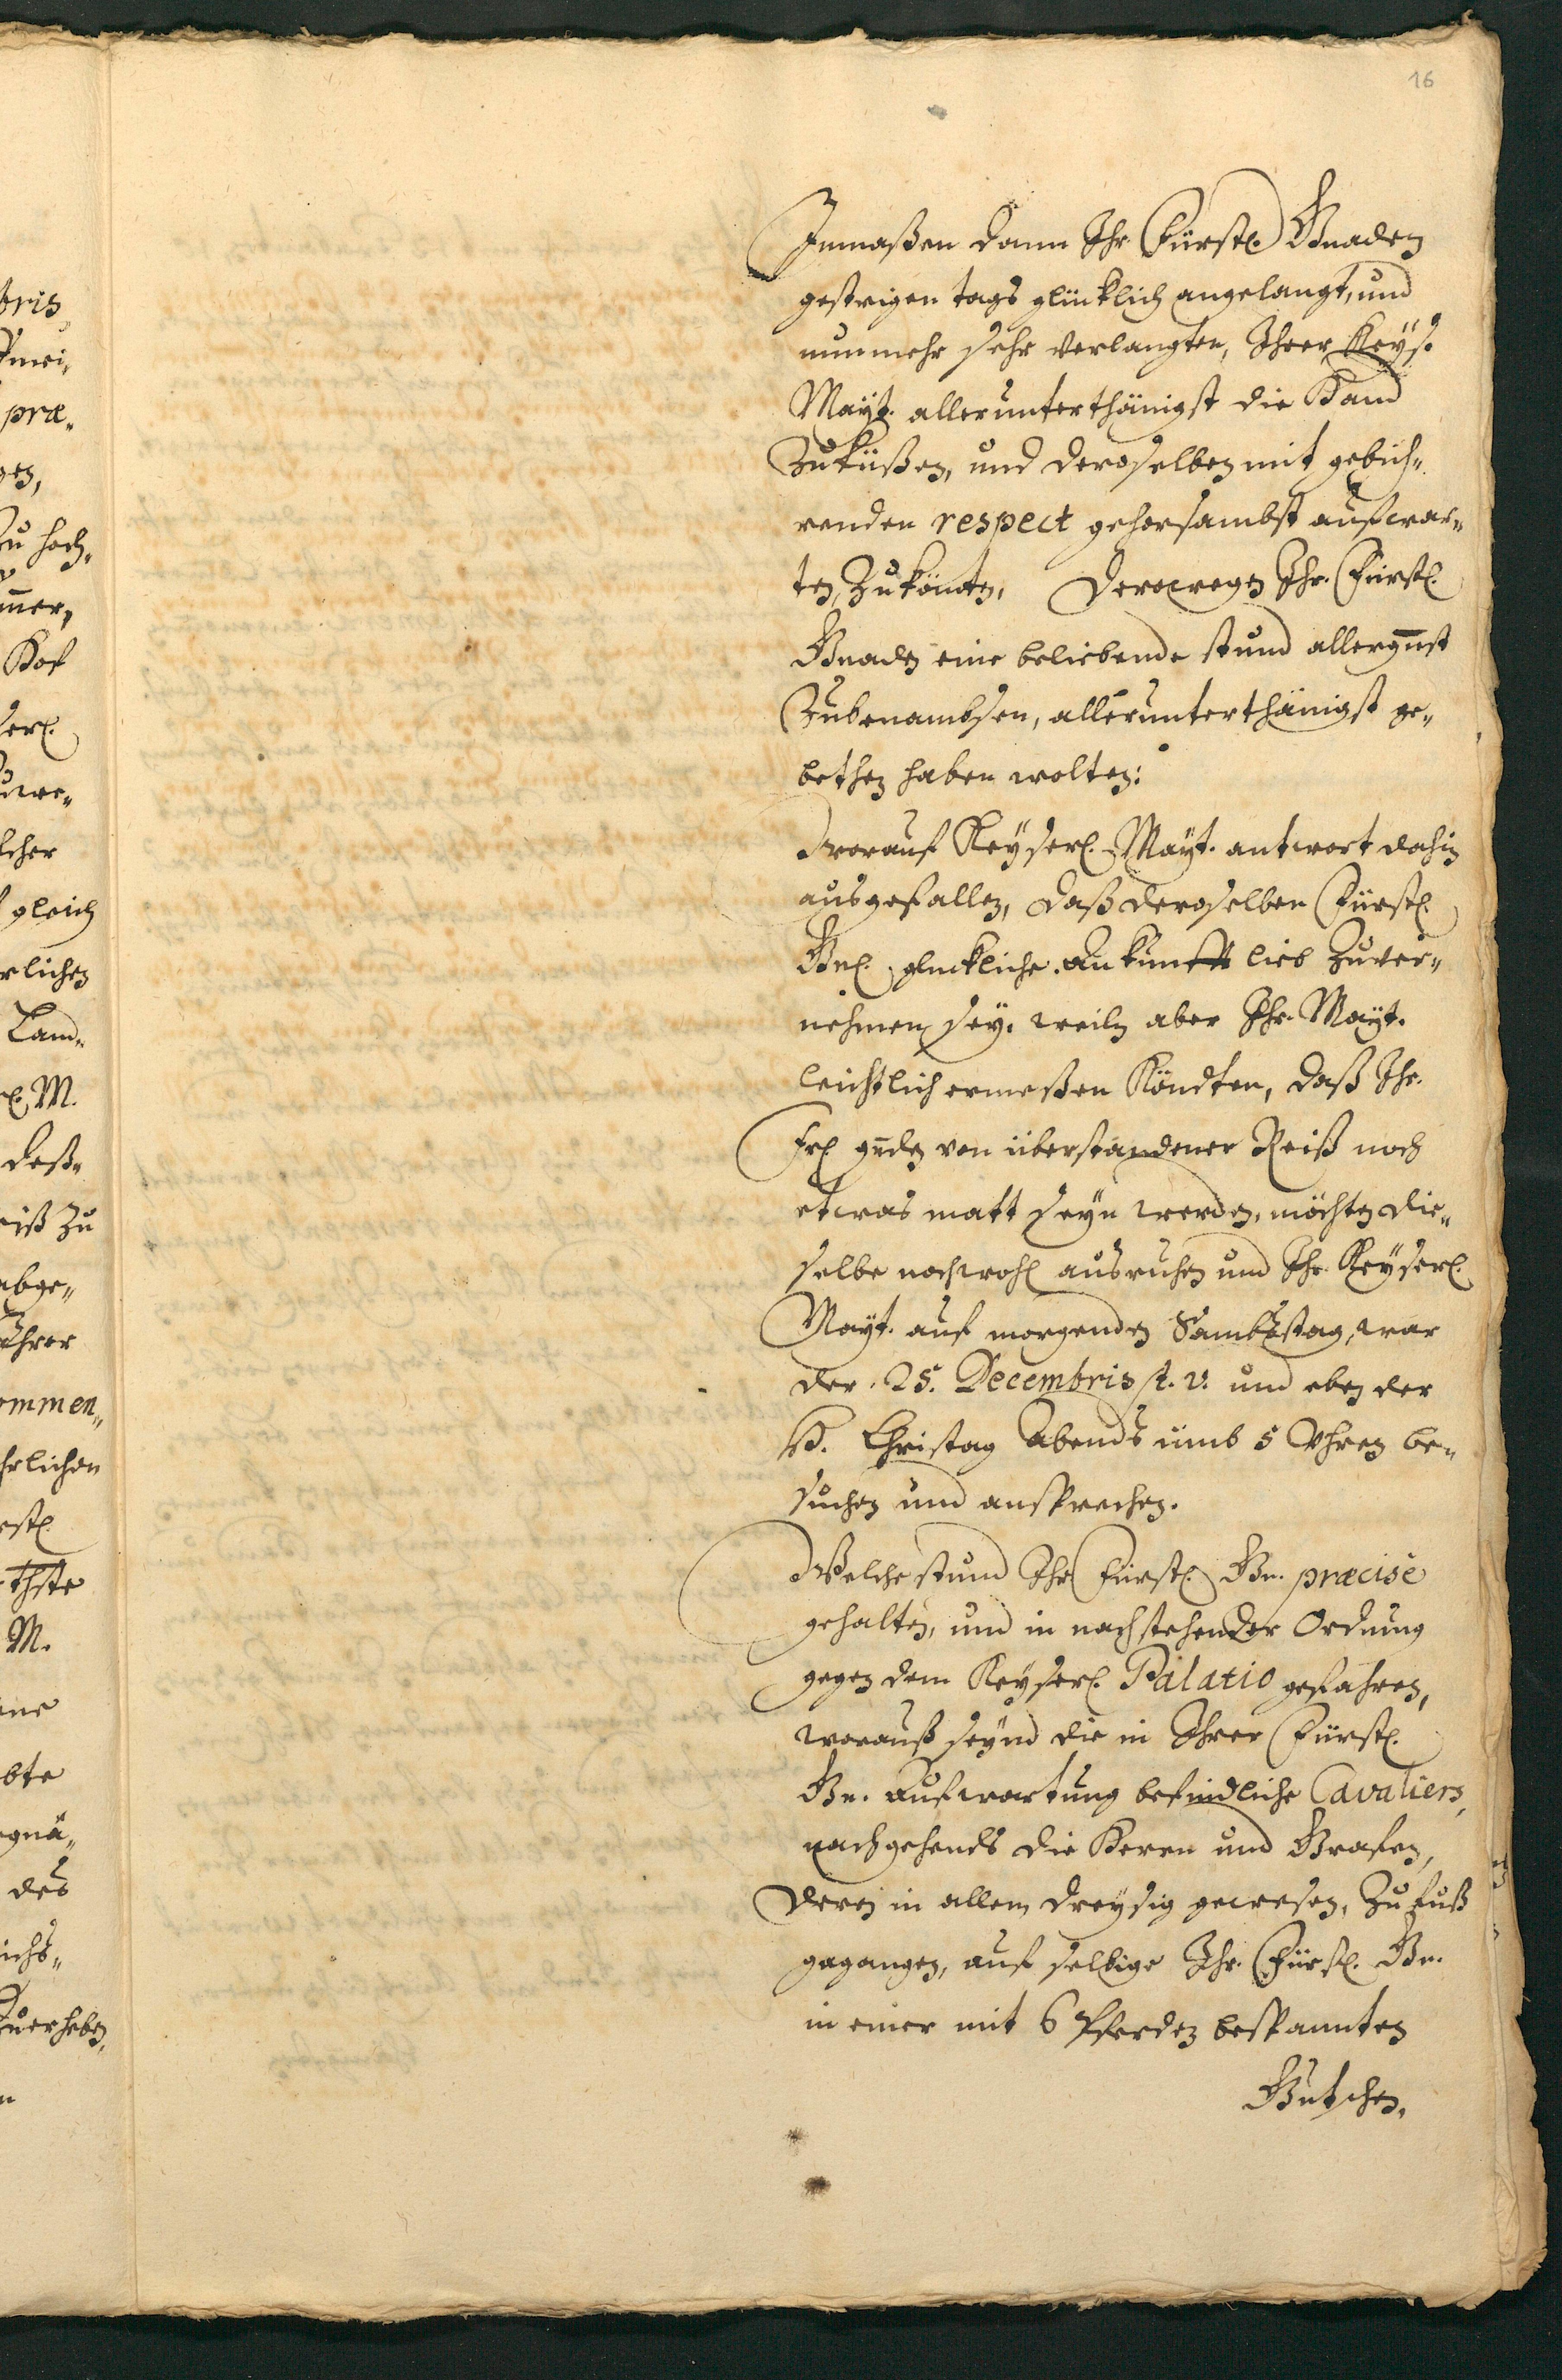 16
Inmaßen dann Ihr Fürstl. Gnaden
gestrigen tags glücklich angelangt, und
nunmehr sehr verlangten, Ihrer Keys.
Mayt. allerunterthänigst die Hand
Zuküßen, und deroselben mit gebüh„
renden respect gehorsambst aufwar„
ten Zukönten. Derowegen Ihr. Fürstl.
Gnaden eine beliebende stund allergn̅st
Zubenambsen, allerunterthänigst ge„
bethen haben wolten:
Worauf Keyserl. Mayt. antwort dahin
ausgefallen, daß deroselben Fürstl.
Gnl. gluckliche ankunfft lieb Zuver„
nehmen sey. weiln aber Ihr. Mayt.
leichtlich ermeßen Köndten, daß Ihr.
Frl gn̅den von überstandener Reiß noch
etwas matt seyn werden, möchten die„
selbe noch wohl ausruhen und Ihr. Keyserl.
Mayt. auf morgenden Sambstag, war
der 25. Decembris st. v. und eben der
H. Christag Abends umb 5 Uhren be„
suchen und ansprechen.
Welche stund Ihr Fürstl. Gn. præcisè
gehalten, und in nachstehender Ordnung
gegen dem Keyserl. Palatio gefahren,
worauß seynd die in Ihrer Fürstl.
Gn. Aufwartung befindliche Cavaliers,
nachgehends die Herrn und Grafen,
deren in allem dreysig gewesen, Zu fuß
gegangen, auf selbige Ihr. Fürstl. Gn.
in einer mit 6 Pferden bespannten
Gutschen.